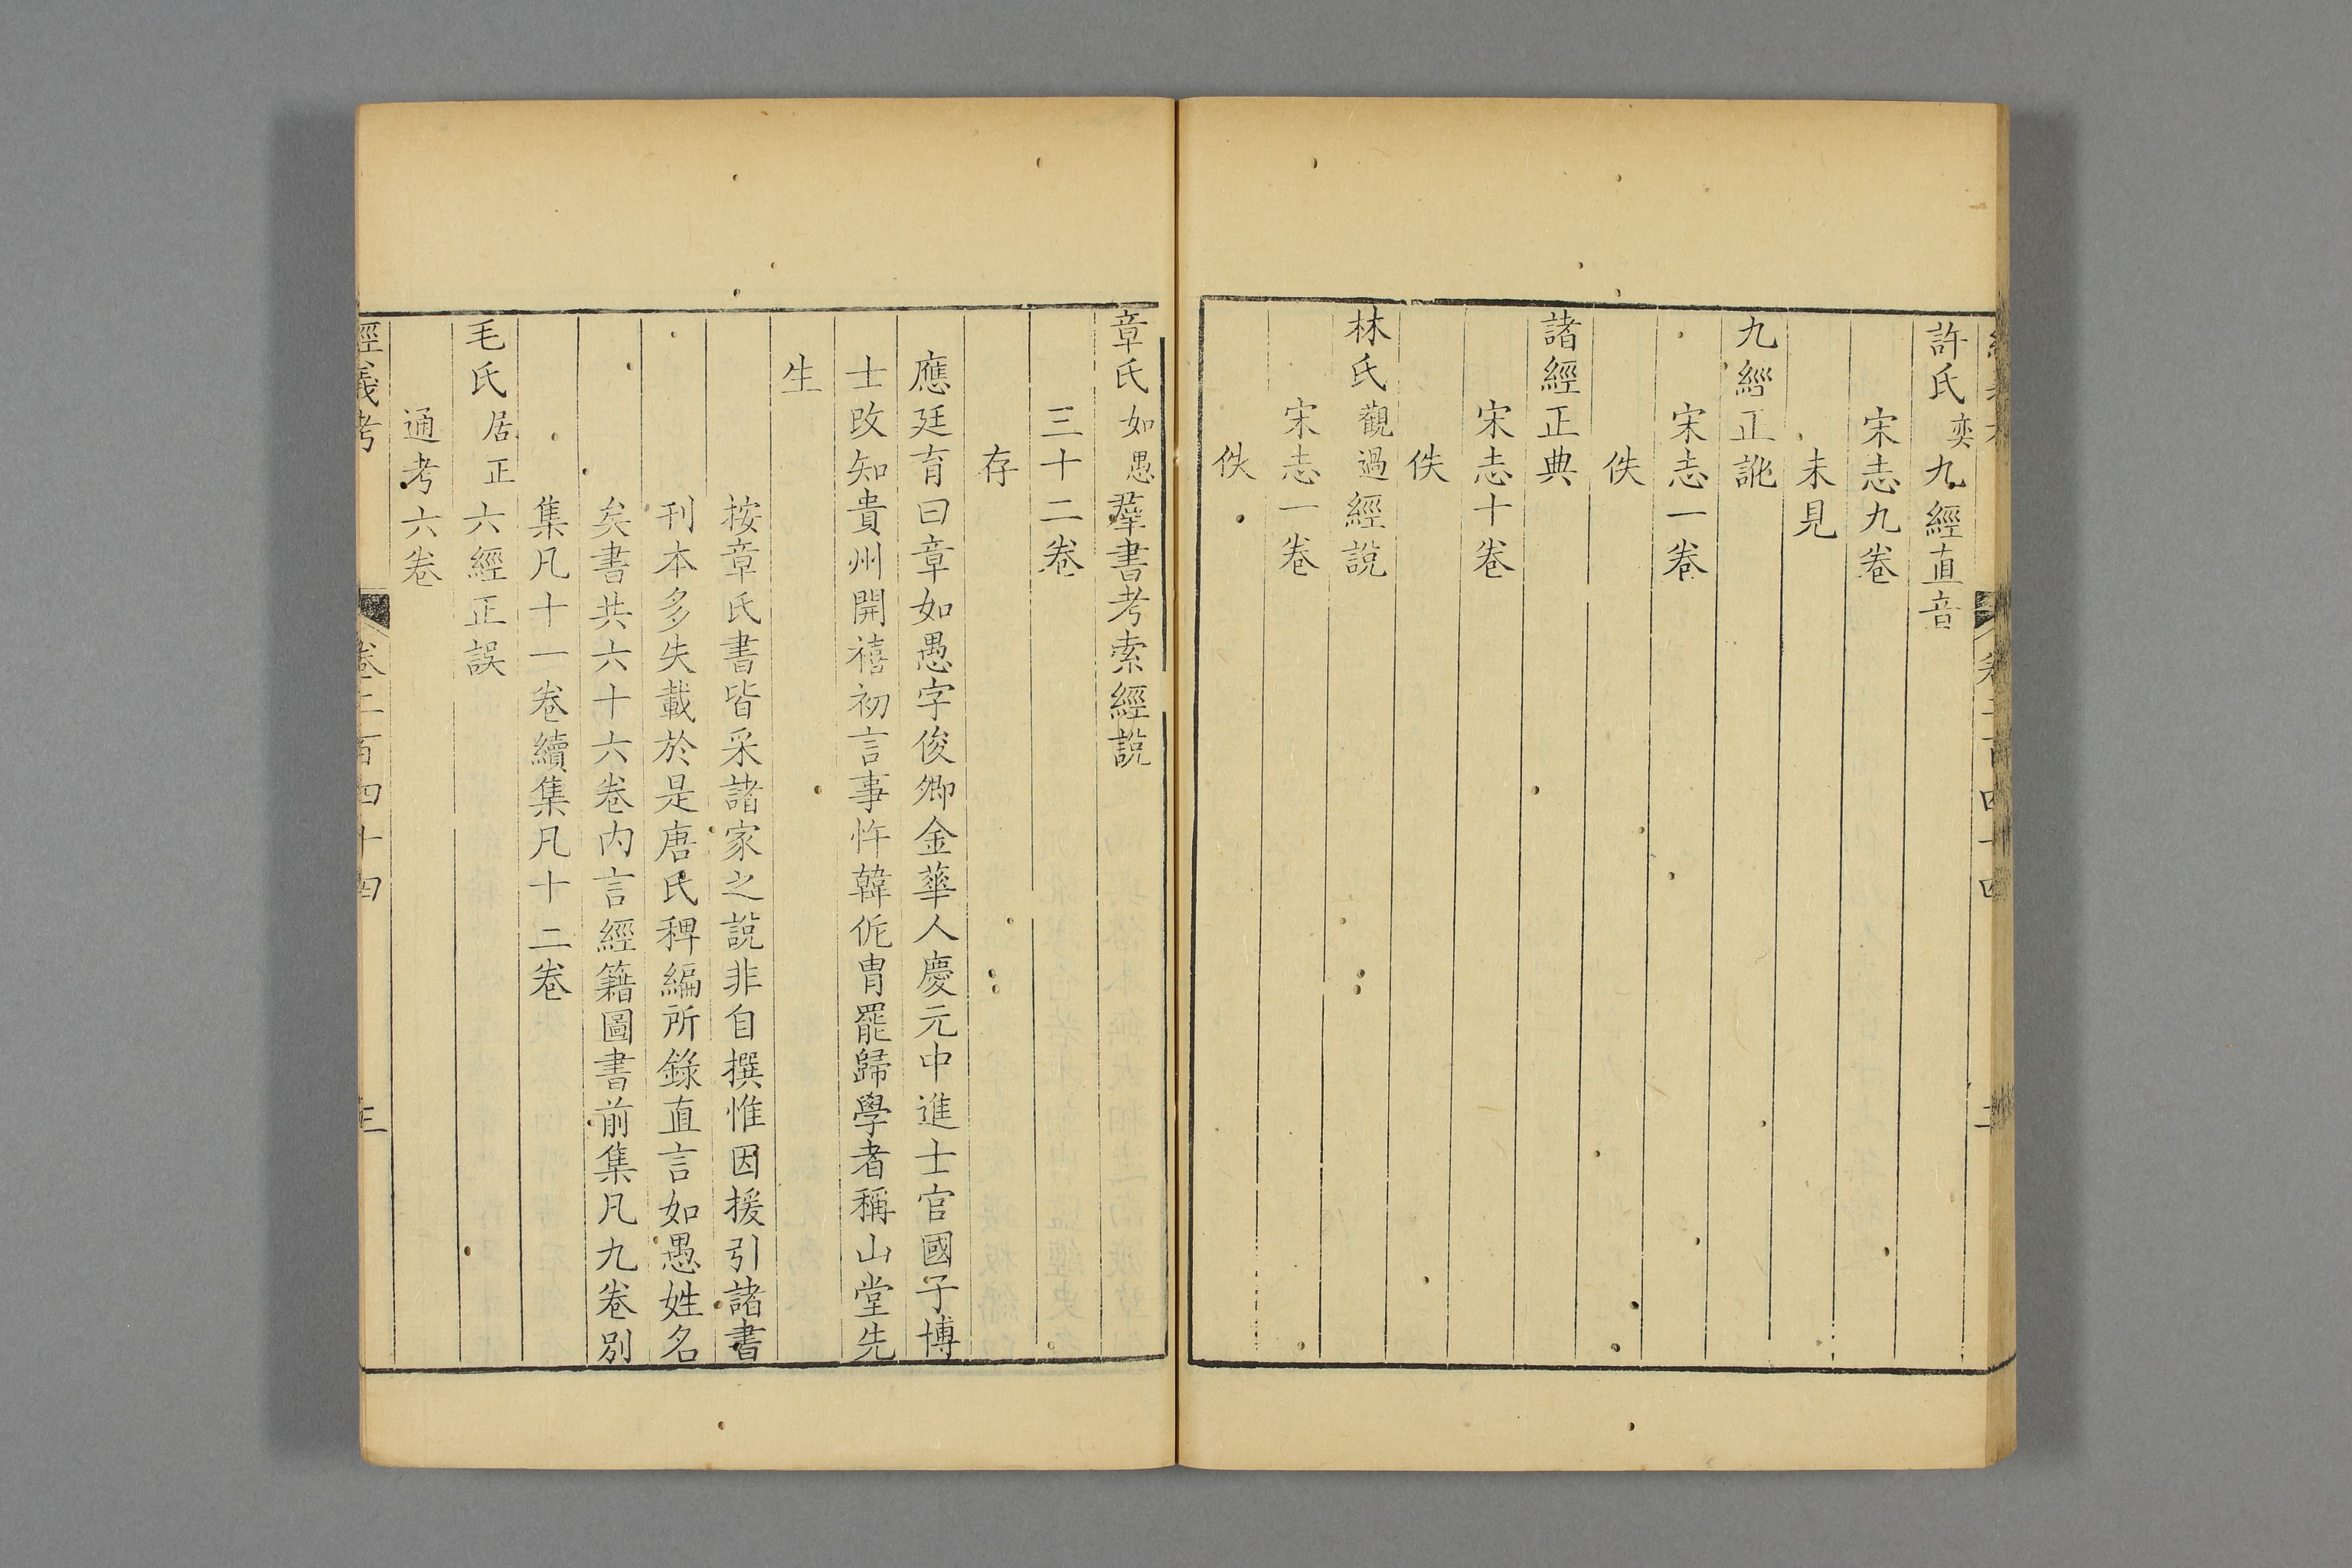 許氏奕九經直音
宋志九卷
未見
九經正訛
宋志一卷
佚
諸經正典
宋志十卷
佚
林氏觀過經說
宋志一卷
佚
章氏如愚羣書考索經說
三十二卷
存
應廷育曰章如愚字俊卿金華人慶元中進士官國子博
士改知貴州開禧初言事忤韓侂胄罷歸學者稱山堂先
生
按章氏書皆采諸家之說非自撰惟因援引諸書
刊本多失載於是唐氏稗編所錄直言如愚姓名
矣書共六十六卷內言經籍圖書前集凡九卷別
集凡十一卷續集凡十二卷
毛氏居正六經正誤
通考六卷
經義考 卷二百四十四 三